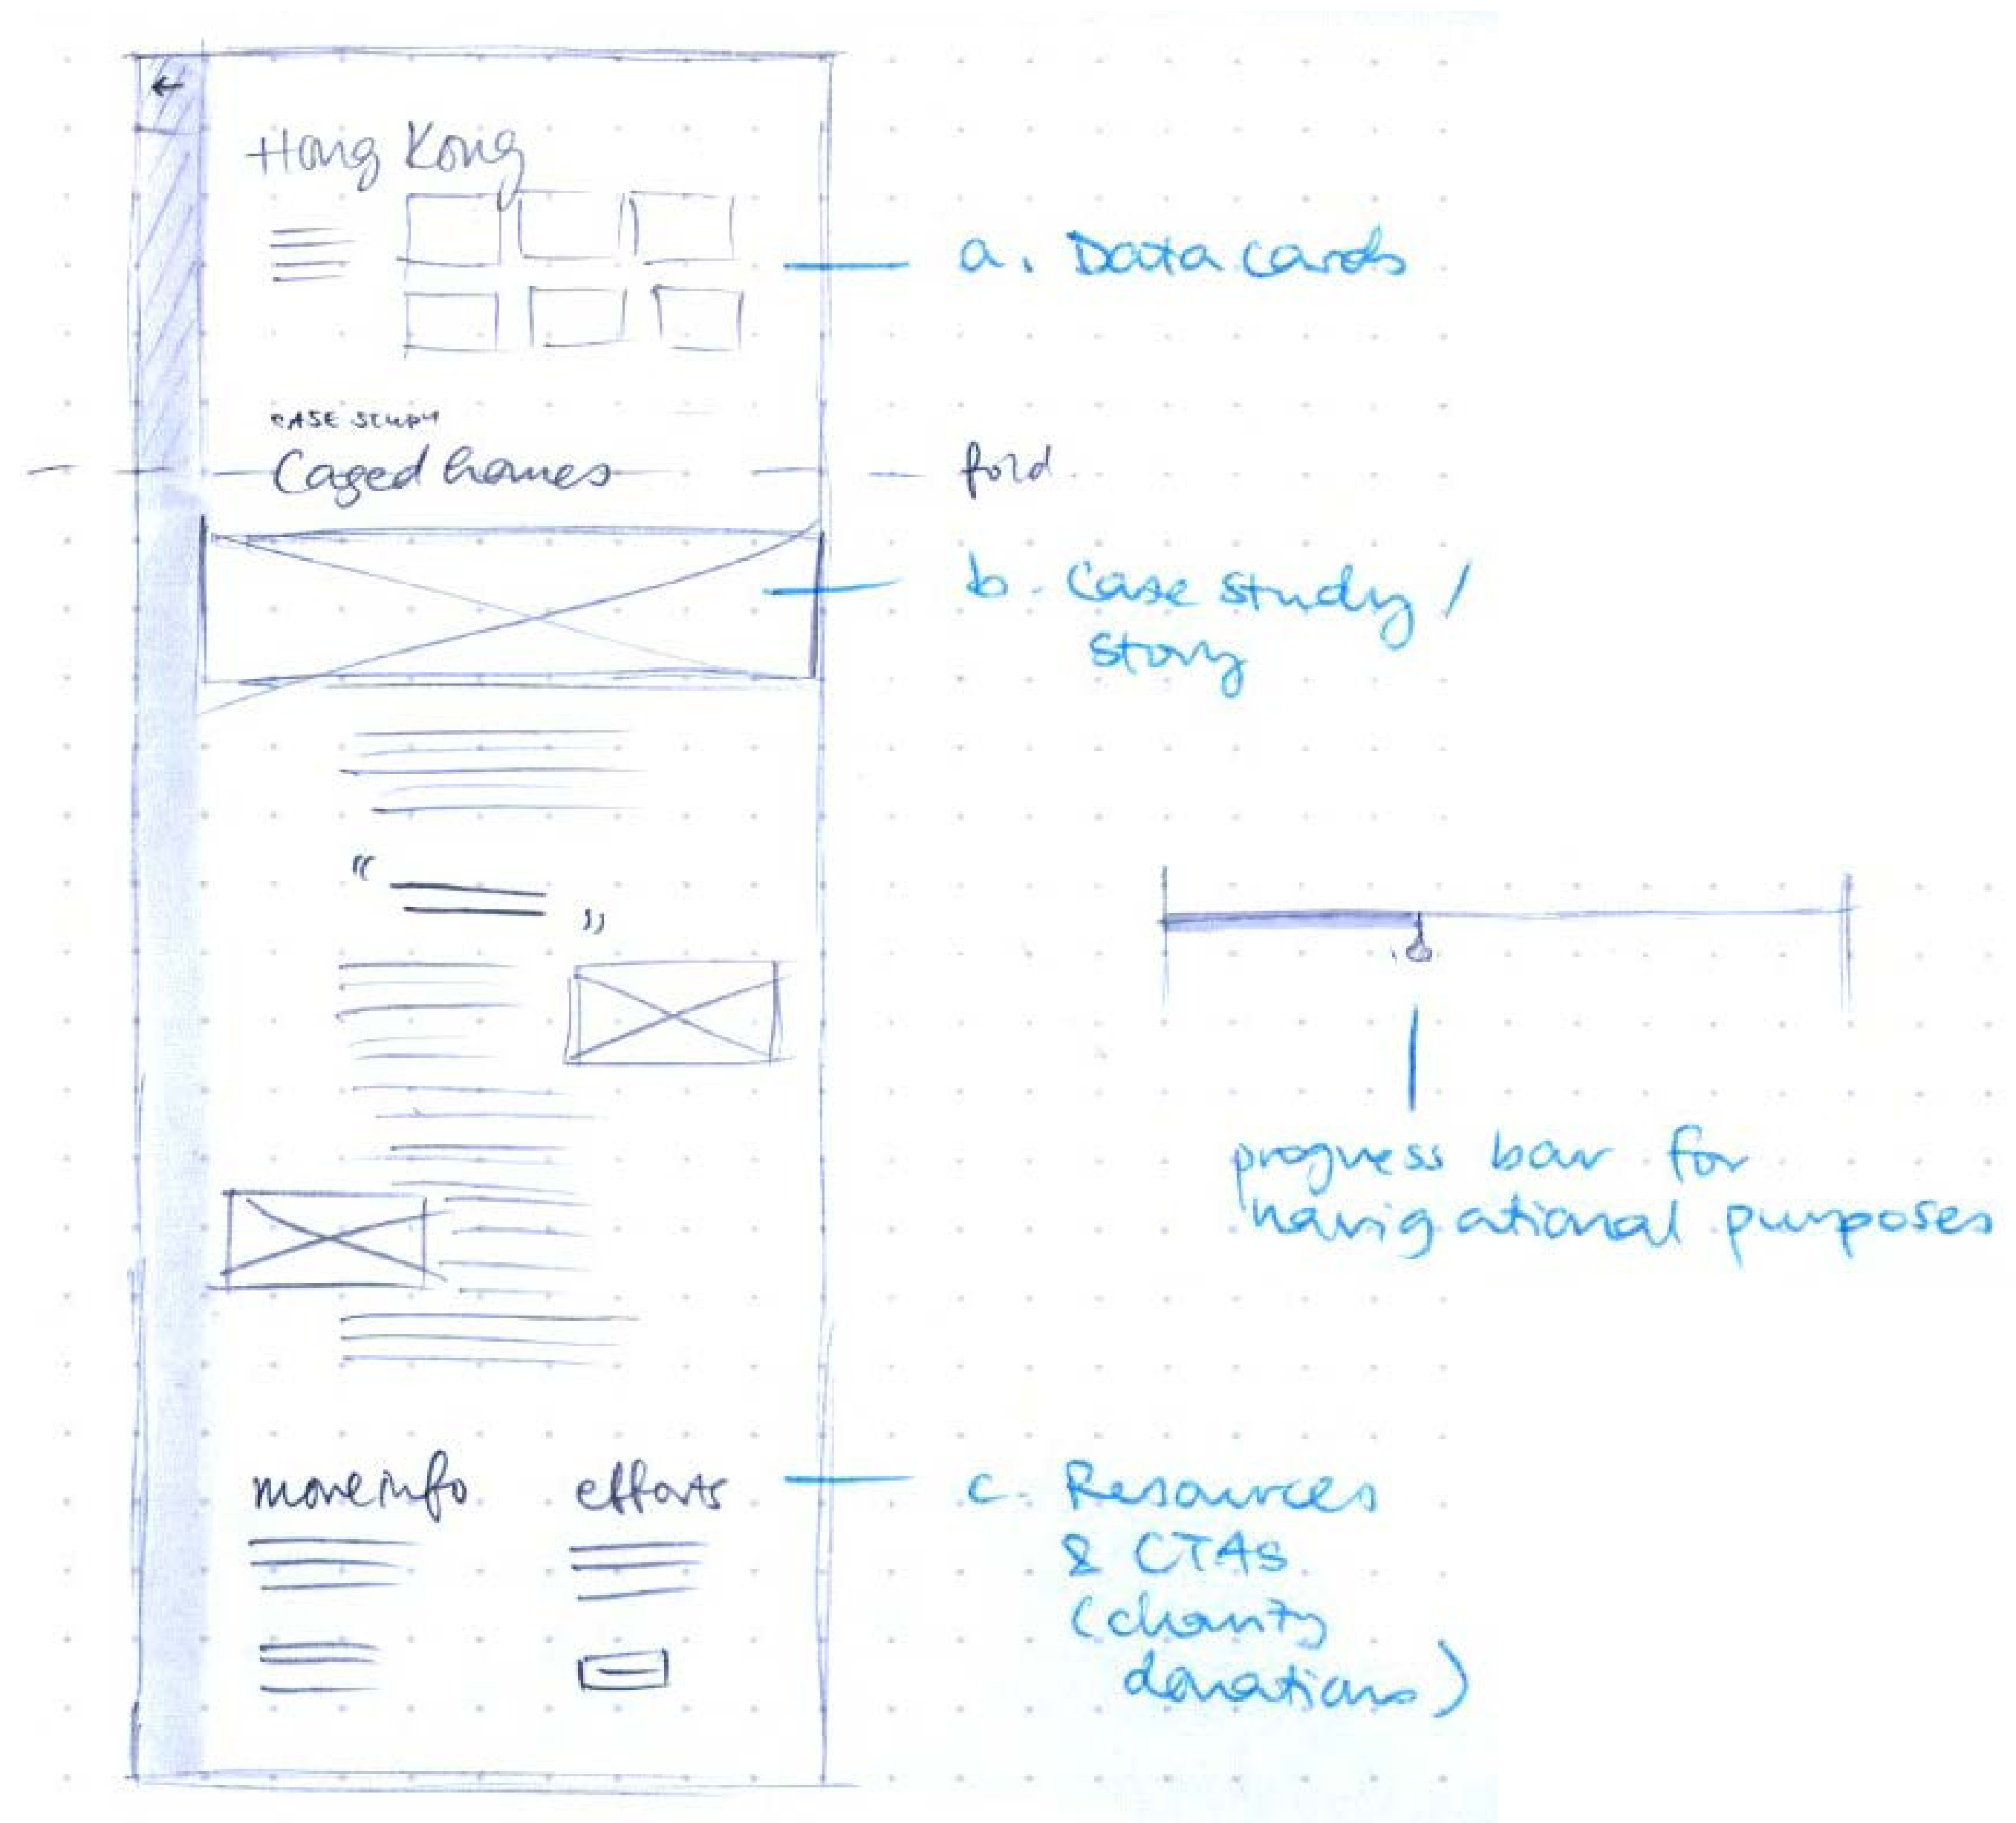 ←
Hong Kong
a. Data cards
CASE STUDY
Caged homes
fold.
b. Case study /
story
“ ”
progress bar for
navigational purposes
more info
efforts
c. Resources
& CTAs
(charity
donations)